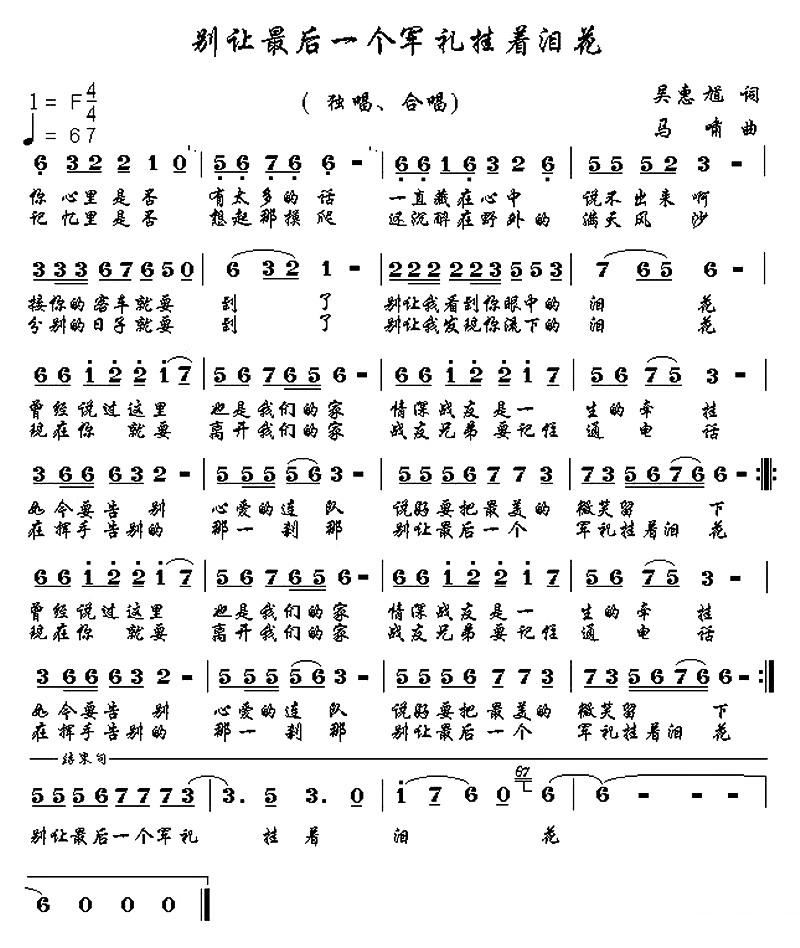 别让最后一个军礼挂着泪花
1= F 4/4
(独唱、合唱)
吴惠馗 词
♩= 67
马 啸 曲
6 3 2 2 1 0 | 5 6 7 6 6 - | 6 6 1 6 3 2 6 | 5 5 5 2 3 - |
你心里是否 有太多的话 一直藏在心中 说不出来啊
记忆里是否 想起那摸爬 还沉醉在野外的 满天风沙
3 3 3 6 7 6 5 0 | 6 3 2 1 - | 2 2 2 2 2 3 5 5 3 | 7 6 5 6 - |
接你的客车就要 到 了 别让我看到你眼中的 泪 花
分别的日子就要 到 了 别让我发现你流下的 泪 花
6 6 1 2 2 1 7 | 5 6 7 6 6 5 6 - | 6 6 1 2 2 1 7 | 5 6 7 5 3 - |
曾经说过这里 也是我们的家 情深战友是一 生的牵挂
现在你 就要 离开我们的家 战友兄弟要记住 通电话
3 6 6 6 3 2 - | 5 5 5 5 5 6 3 - | 5 5 5 6 7 7 3 | 7 3 5 6 7 6 6 - :||:
如今要告别 心爱的连队 说好要把最美的 微笑留 下
在挥手告别的 那一刹那 别让最后一个 军礼挂着泪花
6 6 1 2 2 1 7 | 5 6 7 6 6 5 6 - | 6 6 1 2 2 1 7 | 5 6 7 5 3 - |
曾经说过这里 也是我们的家 情深战友是一 生的牵挂
现在你 就要 离开我们的家 战友兄弟要记住 通电话
3 6 6 6 3 2 - | 5 5 5 5 5 6 3 - | 5 5 5 6 7 7 3 | 7 3 5 6 7 6 6 - :||
如今要告别 心爱的连队 说好要把最美的 微笑留 下
在挥手告别的 那一刹那 别让最后一个 军礼挂着泪花
结束句
5 5 5 6 7 7 7 3 | 3. 5 3. 0 | 1 7 6 0 67 6 | 6 - - - |
别让最后一个军礼 挂着 泪 花
6 0 0 0 ||